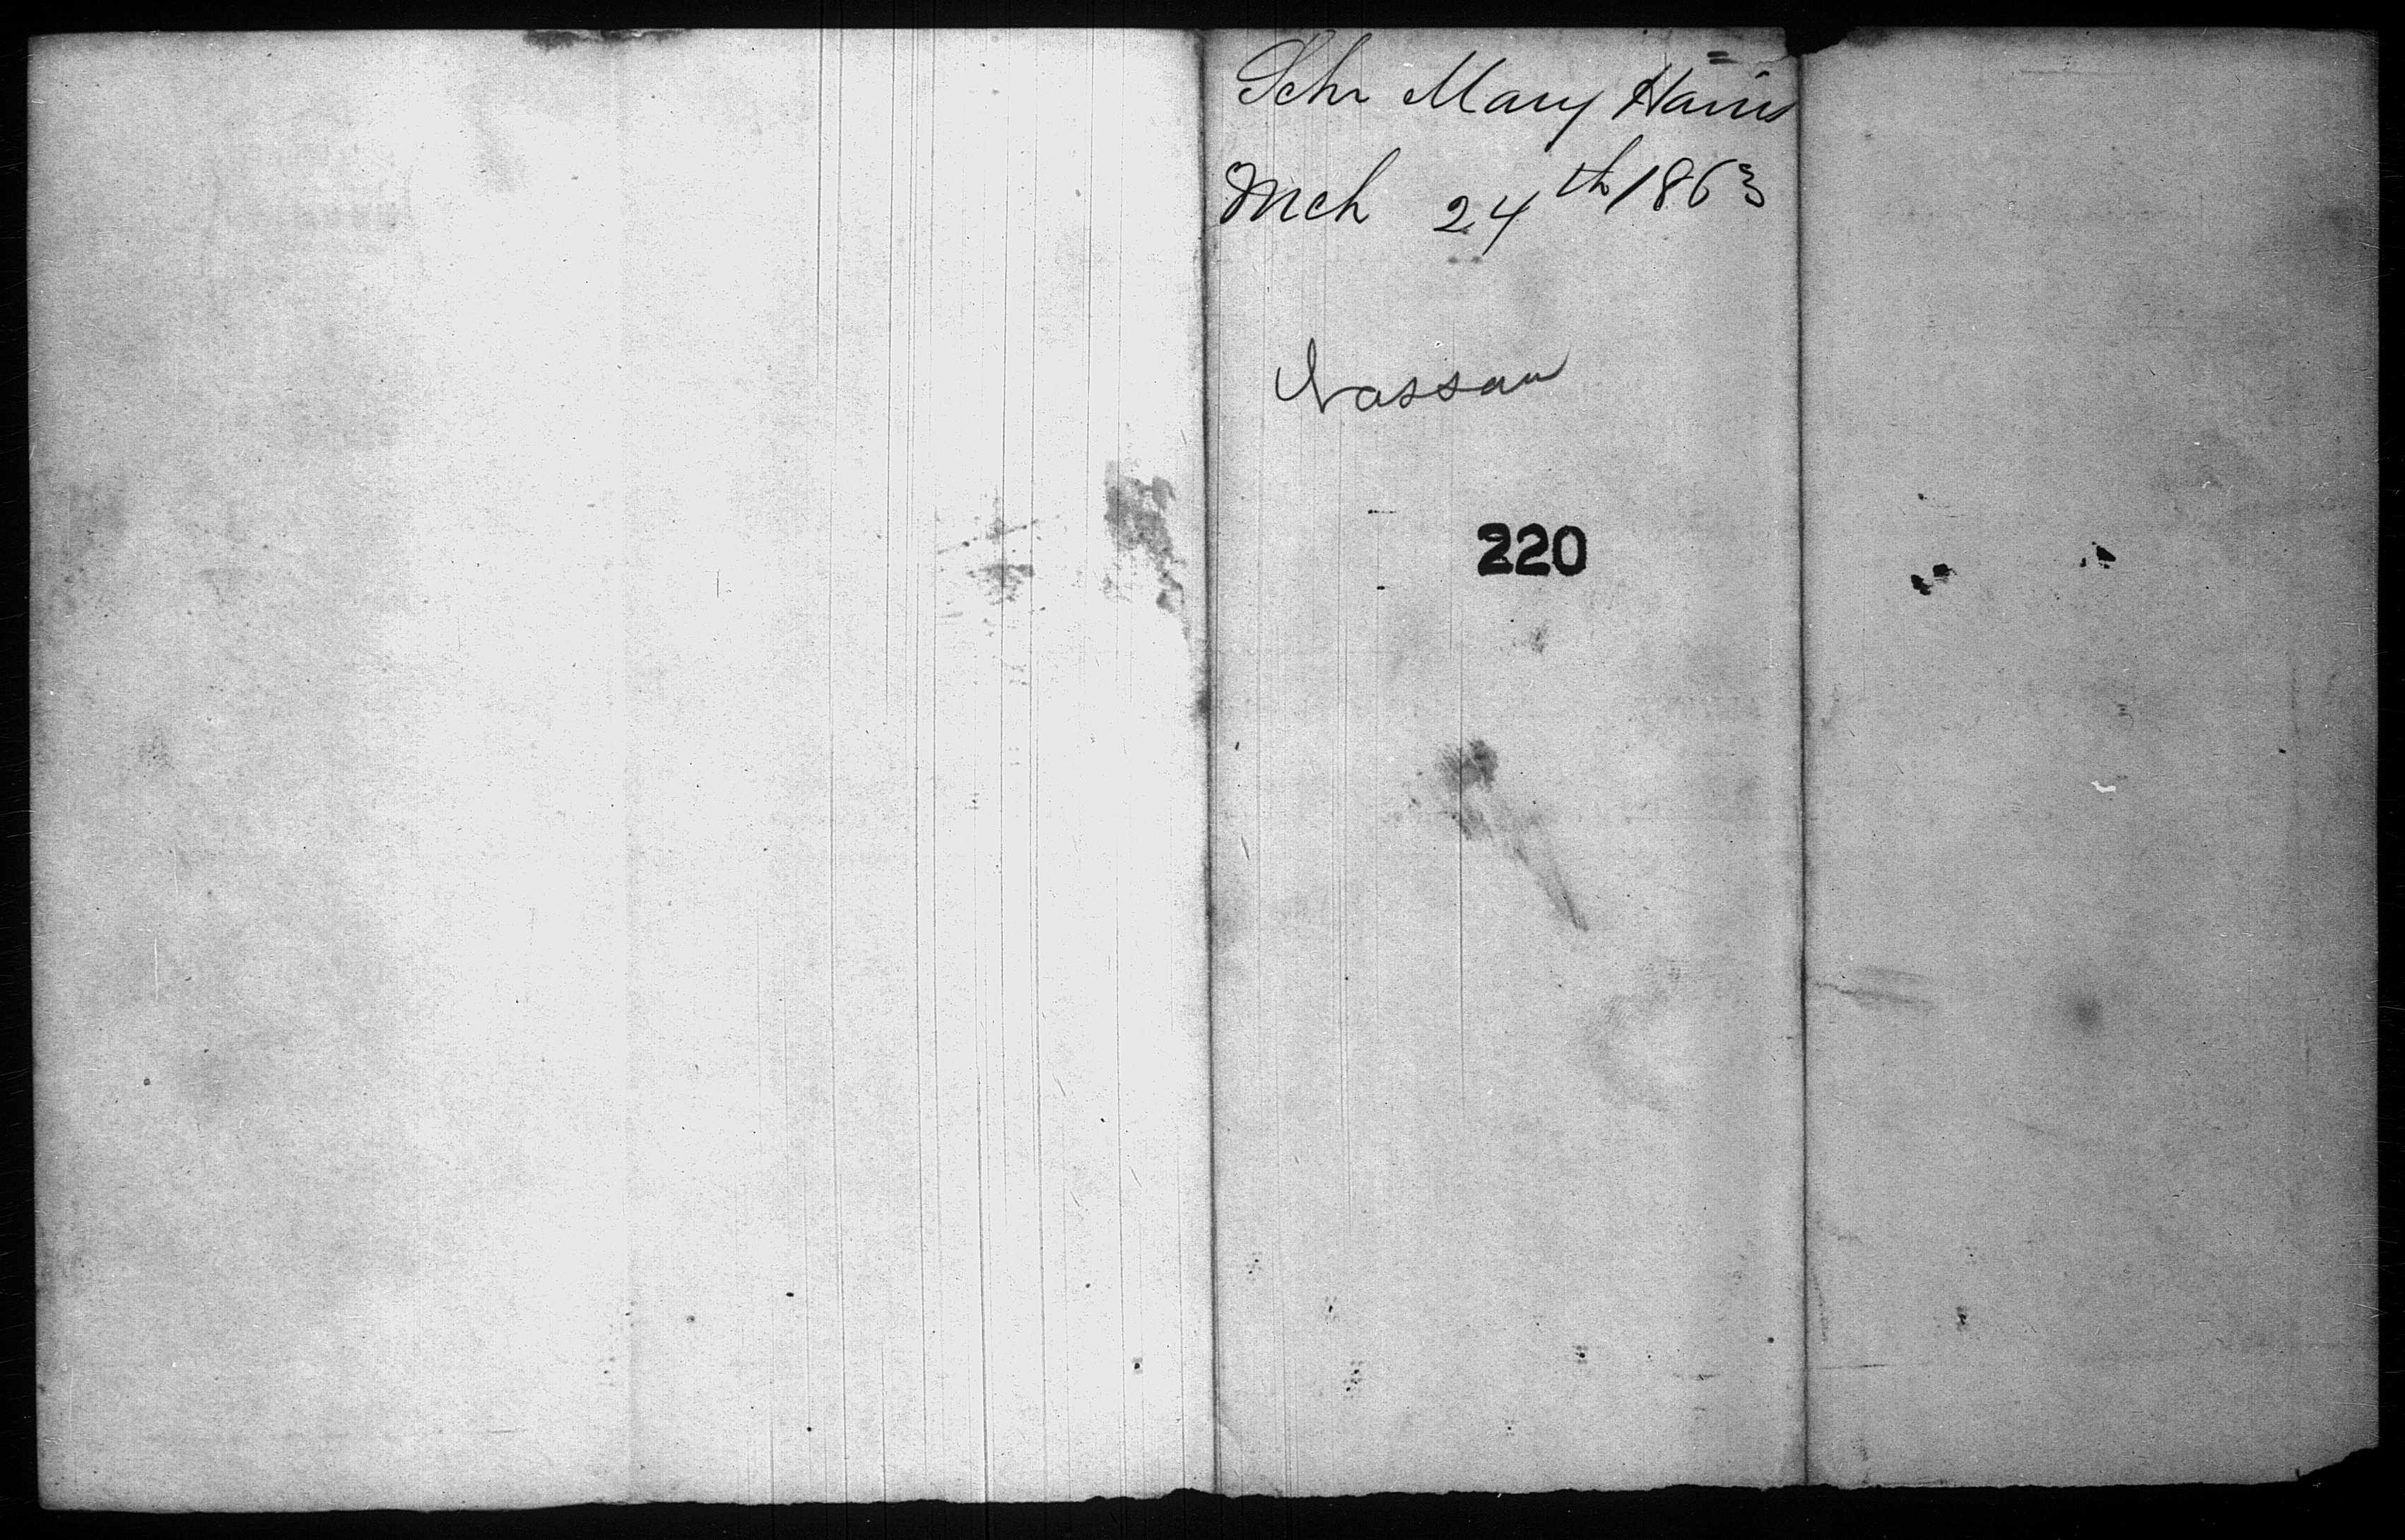 Schr Mary Harris
Mch 24th 1863
Nassau
220